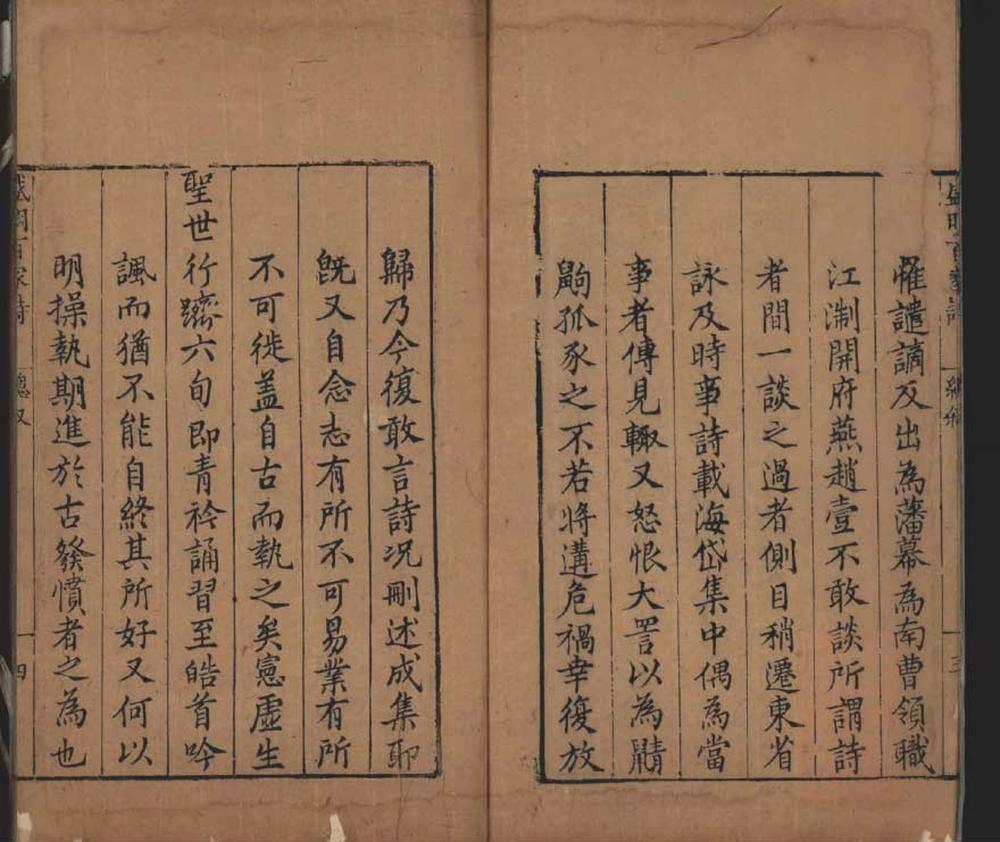 罹譴謫及出為藩幕為南曹領職
江淛開府燕趙壹不敢談所謂詩
者間一談之過者側目稍遷東省
詠及時事詩載海岱集中偶為當
事者傳見輙又怒恨大詈以為
孤豕之不若将遘危禍幸復放
歸乃今復敢言詩况刪述成集耶
旣又自念志有所不可易業有所
不可徙盖自古而執之矣憲虛生
聖世行躋六旬即青衿誦習至皓首吟
諷而猶不能自終其所好又何以
明操執期進於古發憤者之為也
百家詩
四